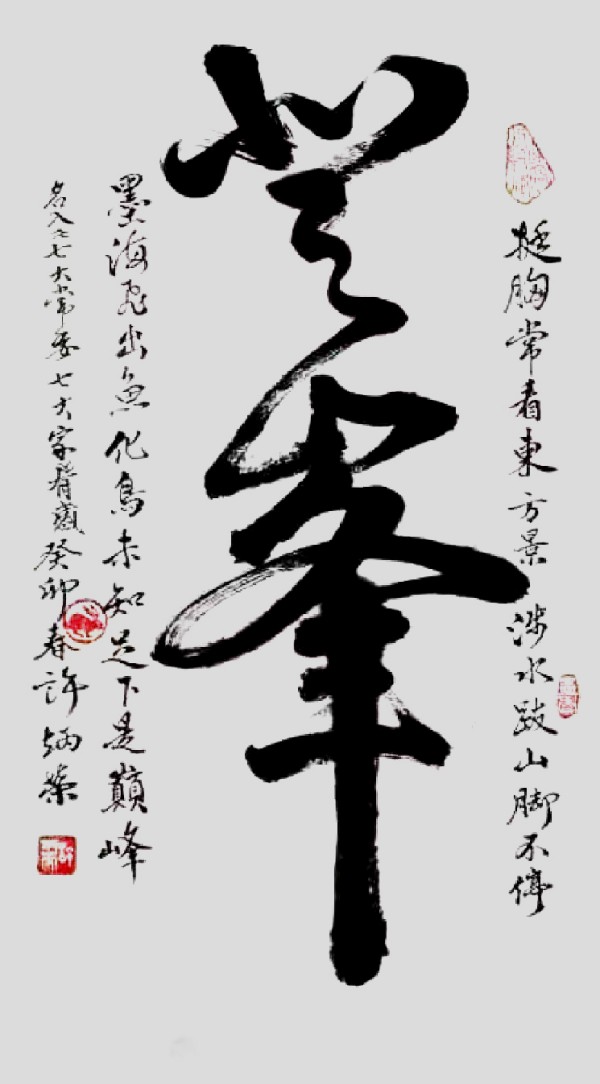 登峯
挺胸常看東方景 涉水跋山脚不停
墨海飛出魚化鳥未知足下是巔峰
名入二七大常委七大家有感癸卯春許炳榮